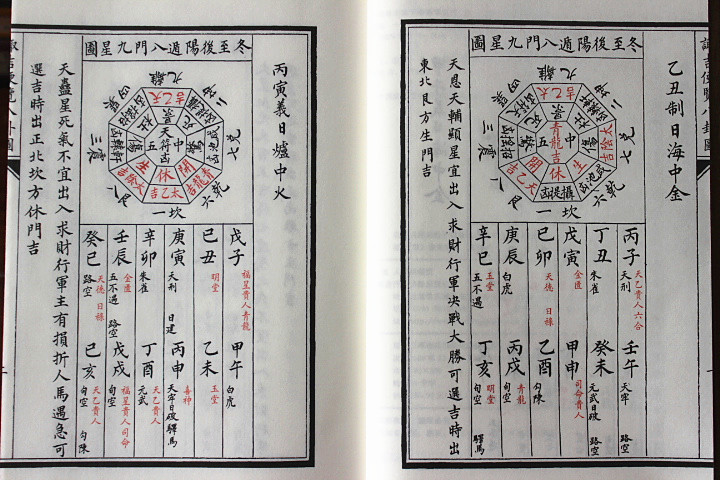 乙丑制日海中金
冬至後陽遁八門九星圖
九離
二坤
七兌
六乾
一坎
八艮
三震
四巽
丙子
天乙貴人六合
天刑
丁丑
朱雀
戊寅
金匱
己卯
天德 日祿
庚辰
白虎
辛巳
玉堂
五不遇
壬午
天牢
路空
癸未
元武日破
路空
甲申
司命貴人
乙酉
勾陳
丙戌
青龍
旬空
丁亥
明堂
旬空
驛馬
天恩天輔顯星宜出入求財行軍決戰大勝可選吉時出
東北艮方生門吉
丙寅義日爐中火
冬至後陽遁八門九星圖
九離
二坤
七兌
六乾
一坎
八艮
三震
四巽
戊子
福星貴人青龍
己丑
明堂
庚寅
天刑
日建
辛卯
朱雀
壬辰
金匱
五不遇
路空
癸巳
天德 日祿
路空
甲午
白虎
乙未
玉堂
丙申
喜神
天牢日破驛馬
丁酉
天乙貴人
元武
戊戌
福星貴人司命
旬空
己亥
天乙貴人
旬空
勾陳
天蠱星死氣不宜出入求財行軍主有損折人馬遇急可
選吉時出正北坎方休門吉